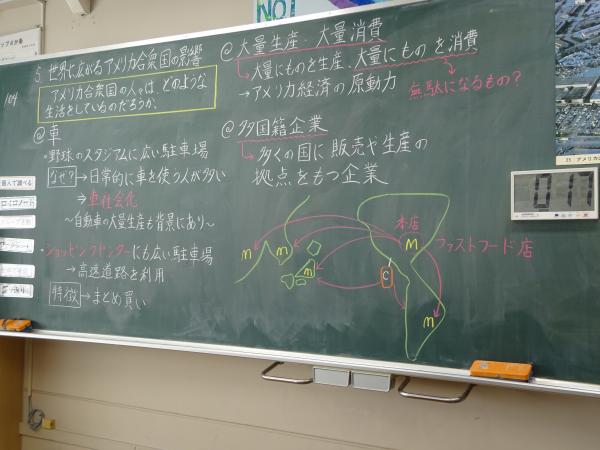 NO!
104
5 世界に広がるアメリカ合衆国の影響
アメリカ合衆国の人々は、どのような
生活をしているのだろうか。
@車
・野球のスタジアムに広い駐車場
なぜ?→日常的に車を使う人が多い
→車社会化
～自動車の大量生産も背景にあり～
・ショッピングセンターにも広い駐車場
→高速道路を利用
特徴→まとめ買い
@大量生産・大量消費
→大量にものを生産、大量にものを消費
→アメリカ経済の原動力
無駄になるもの?
@多国籍企業
→多くの国に販売や生産の
拠点をもつ企業
本店
M
ファストフード店
m
m
m
C
m
017
個人で調べる